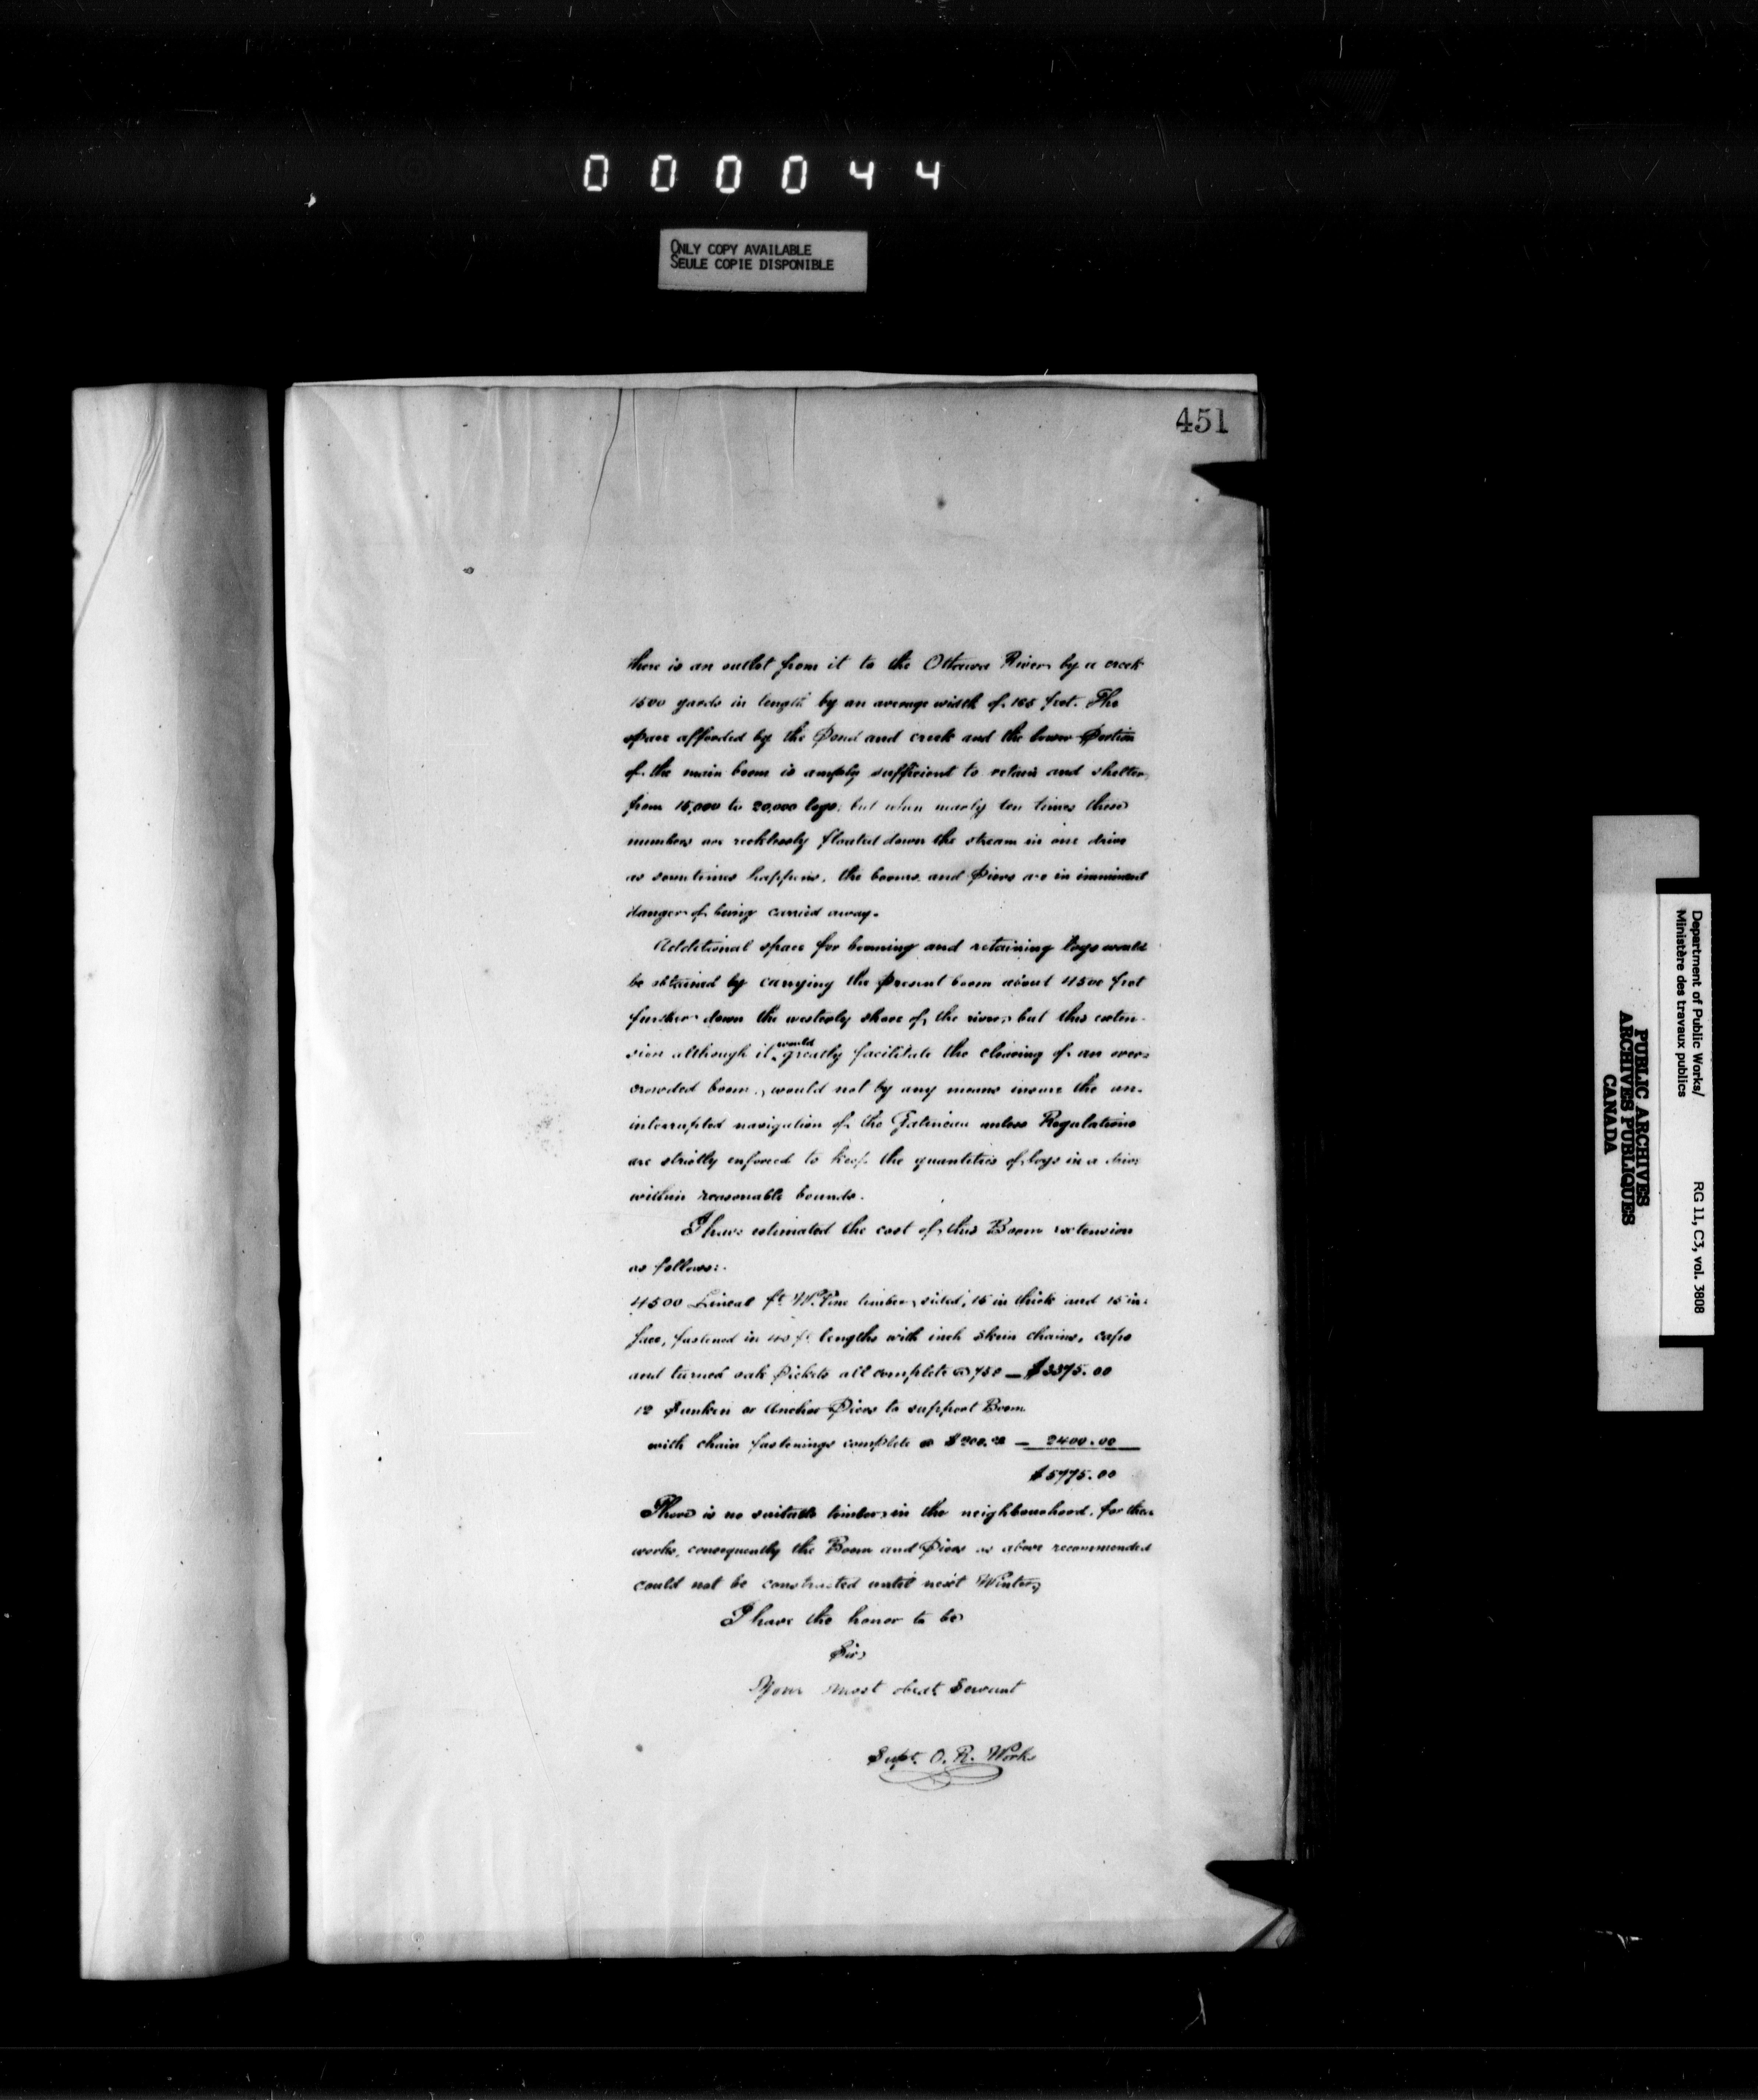 000044
ONLY COPY AVAILABLE
SEULE COPIE DISPONIBLE
451
there is an outlet from it to the Ottawa River by a creek
1500 yards in length by an average width of 165 feet. The
space afforded by the Pond and creek and the lower Portion
of the main boom is amply sufficient to retain and shelter
from 15,000 to 20,000 logs; but when nearly ten times these
numbers are recklessly floated down the stream in one drive
as sometimes happens, the booms and Piers are in imminent
danger of being carried away.
Additional space for booming and retaining logs would
be obtained by carrying the present boom about 4500 feet
further down the westerly shore of the river, but this exten-
sion although it would greatly facilitate the clearing of an over-
crowded boom, would not by any means insure the un-
interrupted navigation of the Gatineau unless Regulations
are strictly enforced to keep the quantities of logs in a drive
within reasonable bounds.
I have estimated the cost of this Boom extension
as follows:-
4500 Lineal ft. W. Pine timber, sided, 15 in thick and 15 in.
face, fastened in 40 ft. lengths with inch chains, caps
and turned oak Pickets all complete @ 750 — $3375.00
12 Sunken or Anchor Piers to support Boom
with chain fastenings complete @ $200.00 — 2400.00
$5775.00
There is no suitable timber in the neighbourhood for these
works, consequently the Boom and Piers as above recommended
could not be constructed until next Winter,
I have the honor to be
Sir,
Your most obedt. Servant
Supt. O. R. Works
Department of Public Works/
Ministère des travaux publics
RG 11, C3, vol. 3808
PUBLIC ARCHIVES
ARCHIVES PUBLIQUES
CANADA